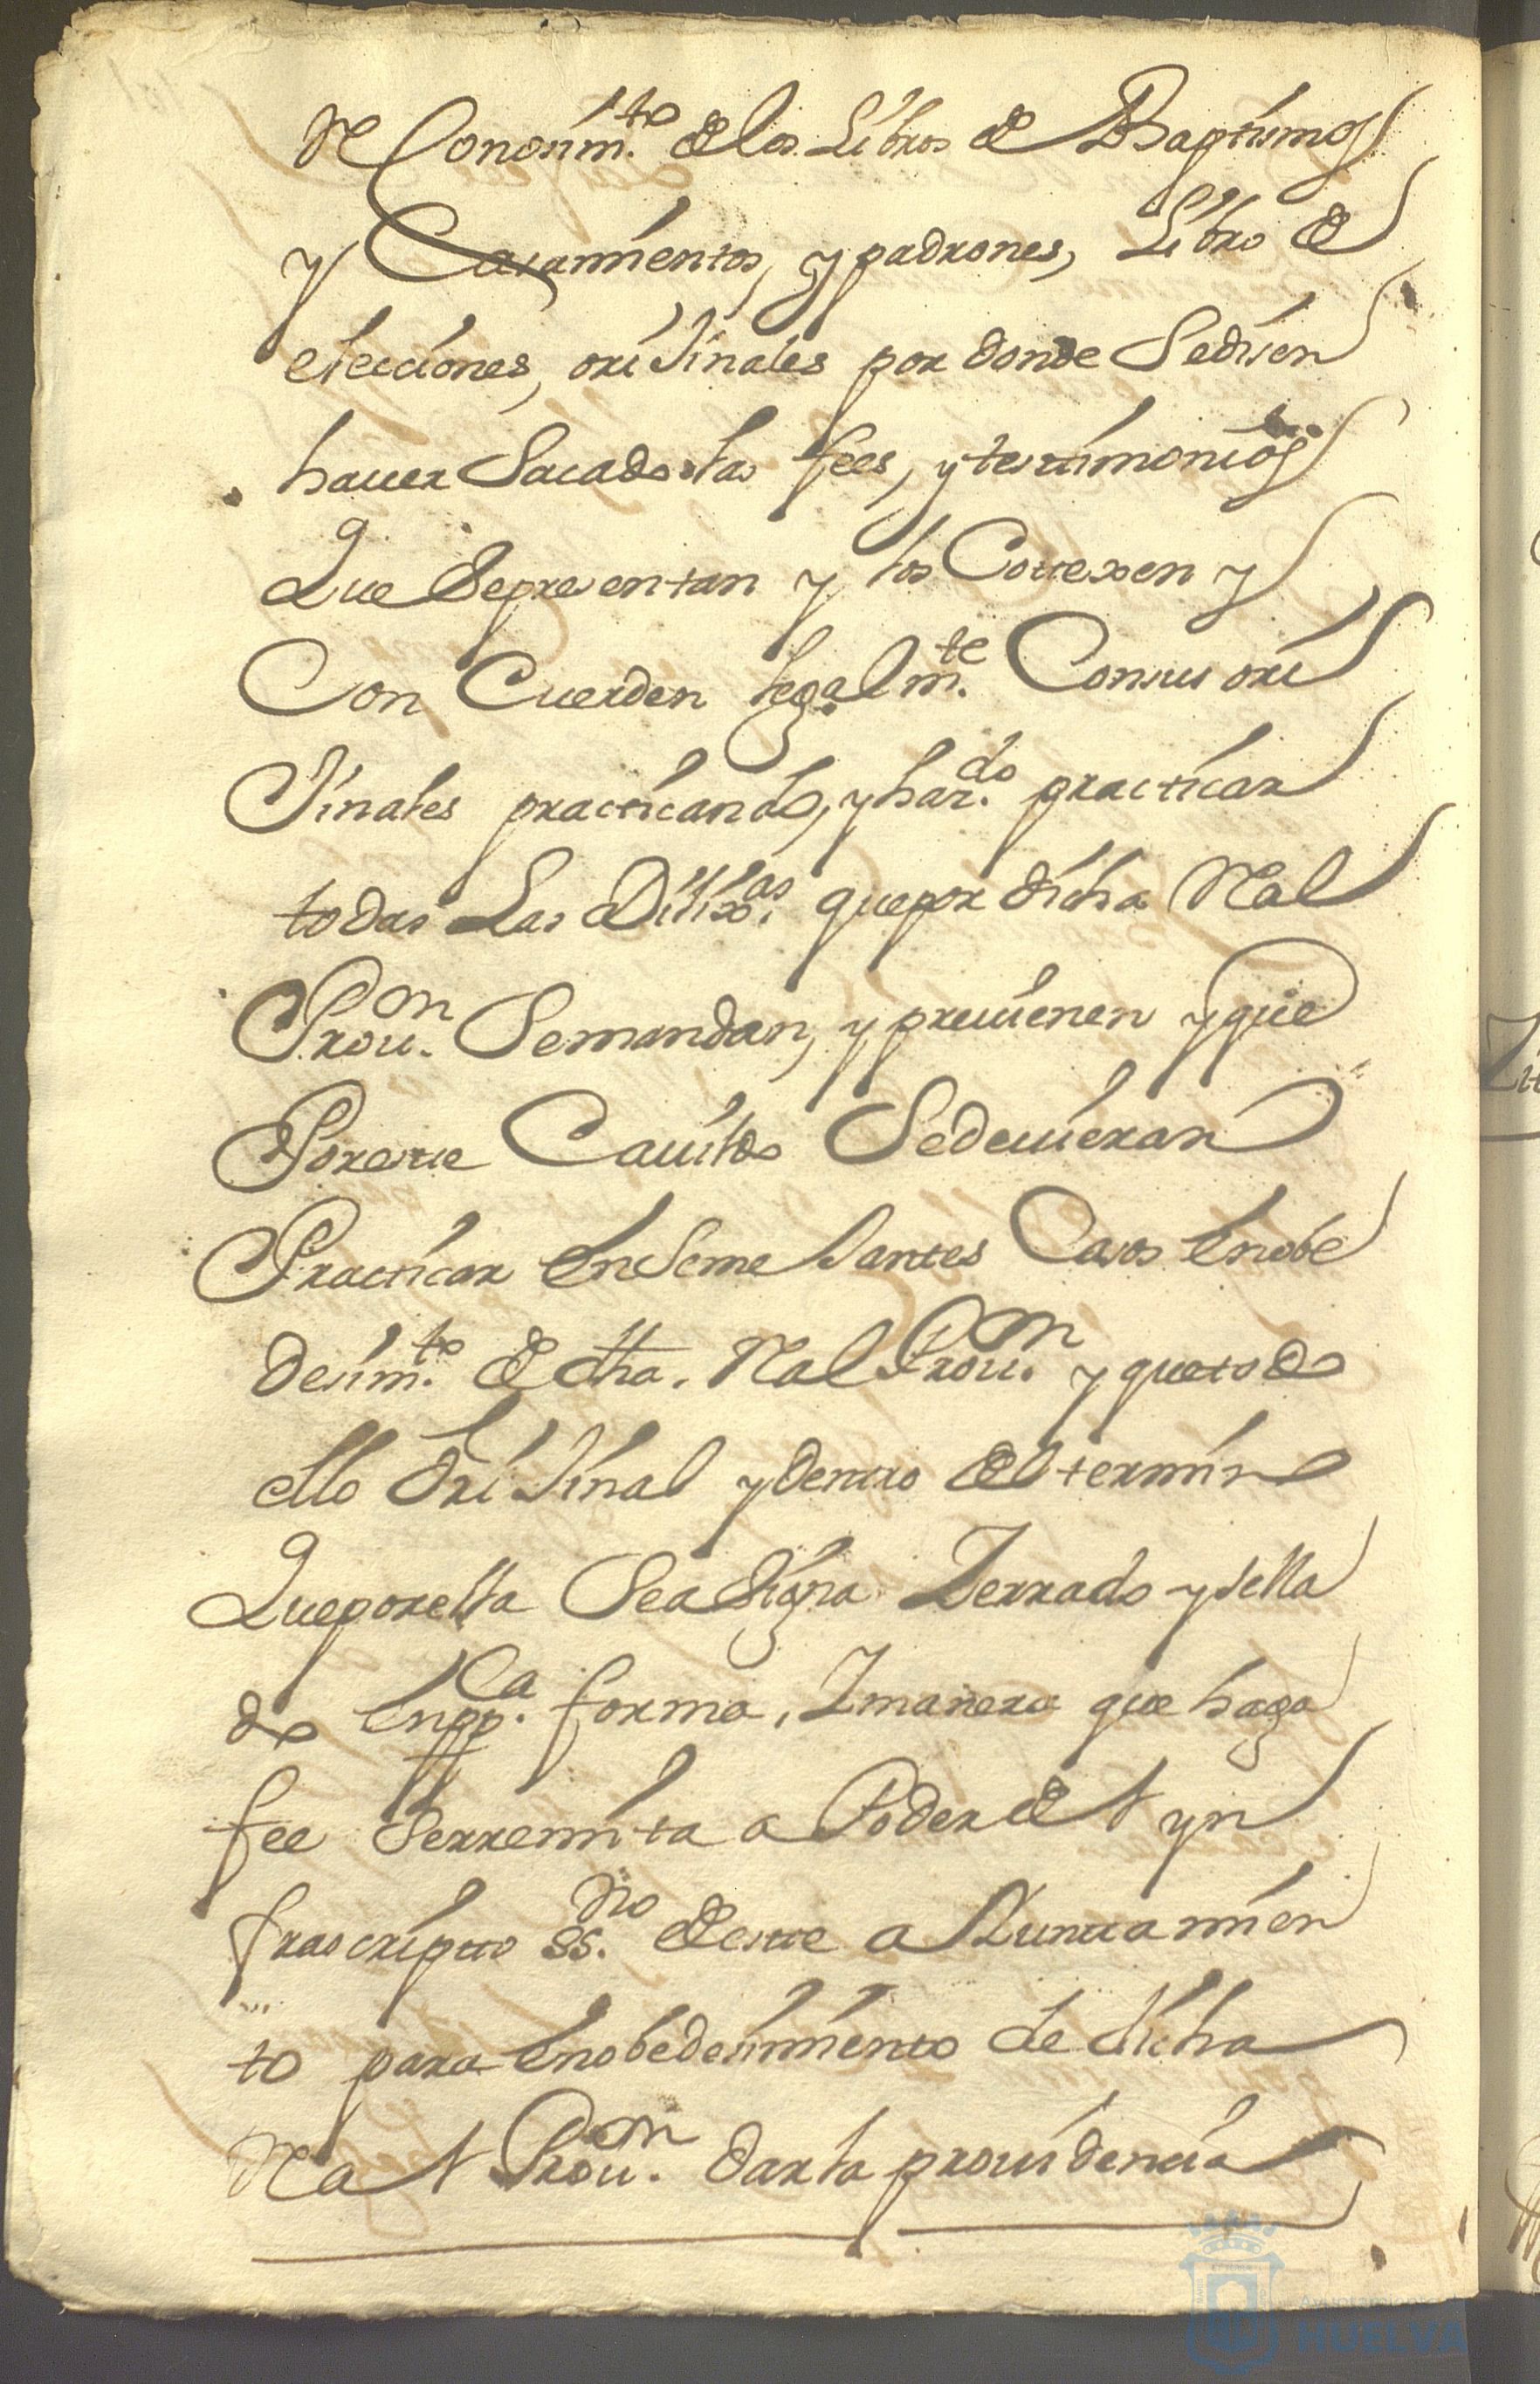 ReConosim.to de los Libros de Baptismos
y Casamientos, y padrones, Libro de
elecciones, orijinales por donde Sedisen
hauer Sacado las fees, y testimonios
Que Sepresentan y los Cotexen y
Con Cuerden legalm.te Consus ori
Jinales practicando, y haz.do practicar
todas Las Dilix.as que por dicha Real
Prou.on Semandan, y preuienen y que
Poreste Cauildo Sedeuieran
Practicar en Seme Jantes Casos en obe
desim.to de dha. Real Prou.on y quetodo
ello Ori Jinal y dentro del termino
Queporella Sea Signa Zerrado y sella
do en pp.ca forma, I manera que haga
fee Serremita a Poder del yn
frascripto ss.rio de este aiuntamien
to para en obedesimiento de dicha
Real Prou.on dar la prouidencia
Ayuntamiento de
HUELVA